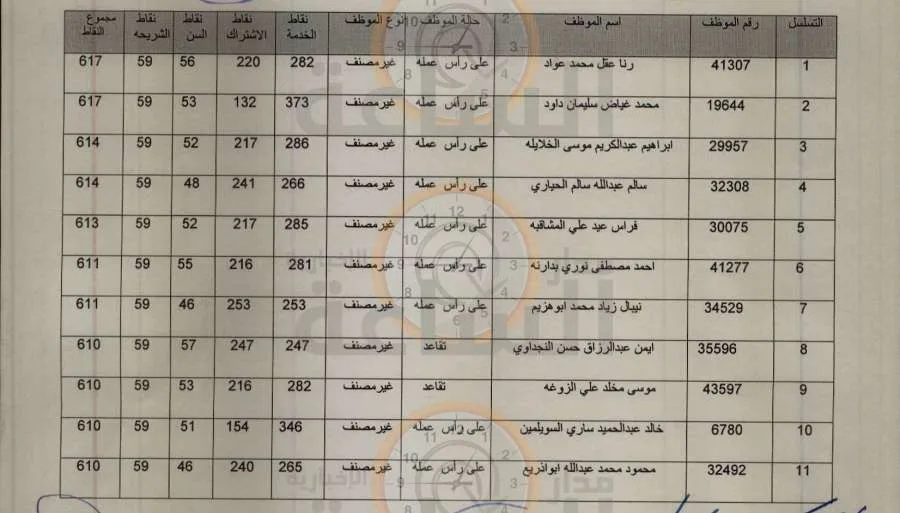 التسلسل رقم الموظف اسم الموظف حالة الموظف نوع الموظف نقاط الخدمة نقاط الاشتراك نقاط السن نقاط الشريحه مجموع النقاط
1 41307 رنا عقل محمد عواد على رأس عمله غير مصنف 282 220 56 59 617
2 19644 محمد غياض سليمان داود على رأس عمله غير مصنف 373 132 53 59 617
3 29957 ابراهيم عبدالكريم موسى الخلايله على رأس عمله غير مصنف 286 217 52 59 614
4 32308 سالم عبدالله سالم الحياري على رأس عمله غير مصنف 266 241 48 59 614
5 30075 فراس عيد علي المشاقبه على رأس عمله غير مصنف 285 217 52 59 613
6 41277 احمد مصطفى نوري بدارنه على رأس عمله غير مصنف 281 216 55 59 611
7 34529 نيبال زياد محمد ابوهزيم على رأس عمله غير مصنف 253 253 46 59 611
8 35596 ايمن عبدالرزاق حسن النجداوي تقاعد غير مصنف 247 247 57 59 610
9 43597 موسى مخلد علي الزوغه تقاعد غير مصنف 282 216 53 59 610
10 6780 خالد عبدالحميد ساري السويلمين على رأس عمله غير مصنف 346 154 51 59 610
11 32492 محمود محمد عبدالله ابوذريع على رأس عمله غير مصنف 265 240 46 59 610